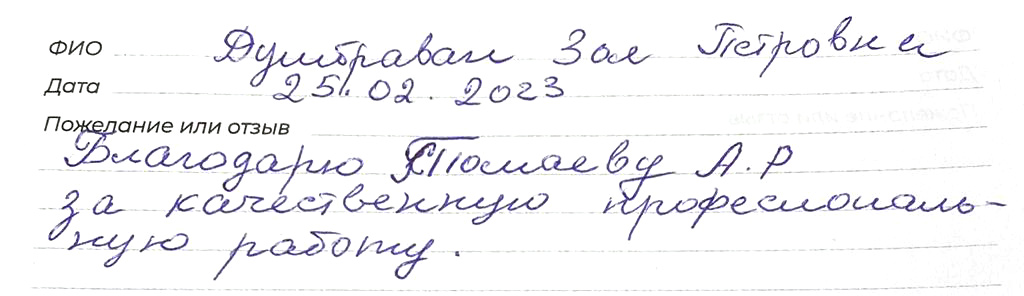 ФИО Думбраван Зоя Петровна
Дата 25.02.2023
Пожелание или отзыв
Благодарю Томаеву А.Р
за качественную професиональ-
ную работу.